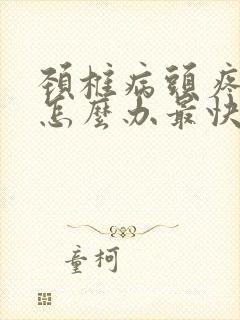 頚椎病頭疼
怎麼办最快
童柯